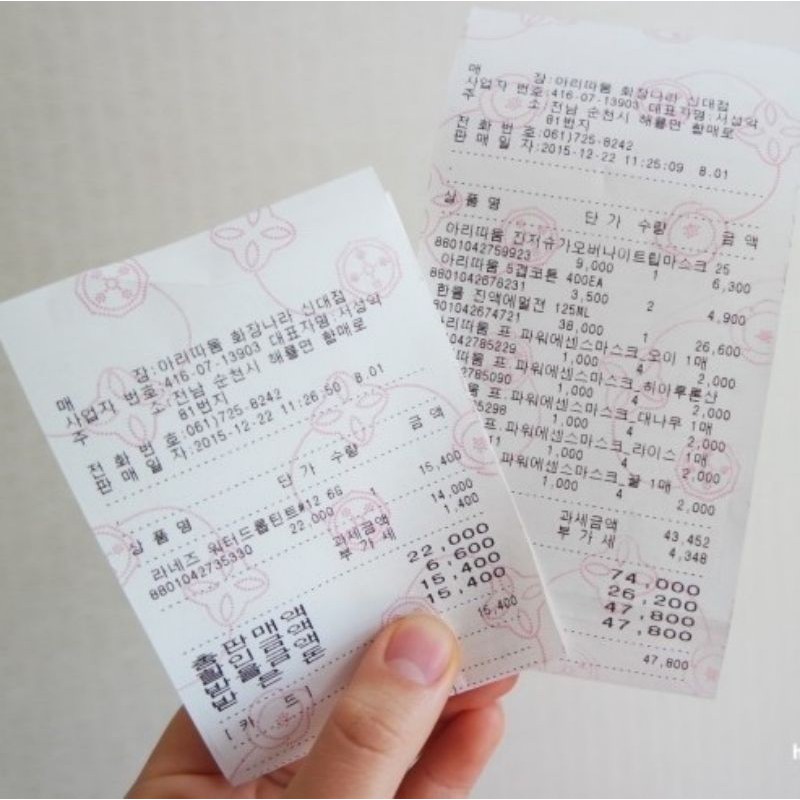 매 장:아리따움 화장나라 신대점
사업자 번호:416-07-13903 대표자명:서성악
주 소:전남 순천시 해룡면 향매로
81번지
전 화 번 호:061)725-8242
판 매 일 자:2015-12-22 11:26:50 8.01
상 품 명 단 가 수량 금 액
라네즈 워터드롭틴트#12 6G
8801042735330 22,000 1 15,400
과세금액 14,000
부 가 세 1,400
총 판 매 액 22,000
할 인 금 액 6,600
받 을 금 액 15,400
받 은 돈 15,400
[ 카 드 ] 15,400
매 장:아리따움 화장나라 신대점
사업자 번호:416-07-13903 대표자명:서성악
주 소:전남 순천시 해룡면 향매로
81번지
전 화 번 호:061)725-8242
판 매 일 자:2015-12-22 11:25:09 8.01
상 품 명 단 가 수량 금 액
아리따움 진저슈가오버나이트립마스크 25
8801042759923 9,000 1 6,300
아리따움 5겹코튼 400EA
8801042678231 3,500 2 4,900
한율 진액에멀전 125ML
801042674721 38,000 1 26,600
리따움 프.파워에센스마스크_오이 1매
042785229 1,000 4 2,000
따움 프.파워에센스마스크_히아루론산
2785090 1,000 4 2,000
움 프.파워에센스마스크_대나무 1매
5298 1,000 4 2,000
프.파워에센스마스크_라이스 1매
1,000 4 2,000
파워에센스마스크_꿀 1매
1,000 4 2,000
과세금액 43,452
부 가 세 4,348
74,000
26,200
47,800
47,800
47,800